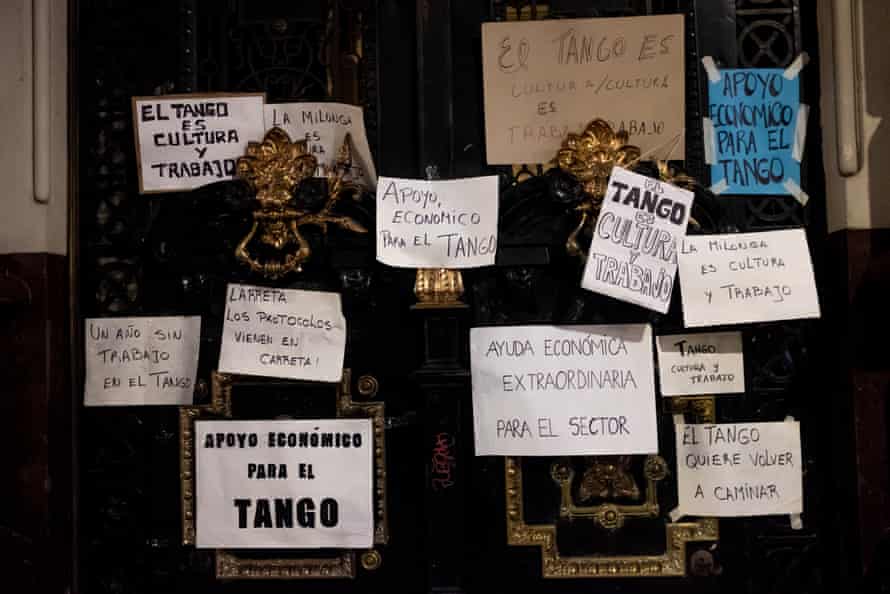 EL TANGO
ES
CULTURA
Y
TRABAJO
LA MILONGA
ES
Y TRABAJO
EL TANGO ES
CULTURA/CULTURA
ES
TRABAJO TRABAJO
APOYO
ECONOMICO
PARA EL
TANGO
APOYO,
ECONOMICO
PARA EL TANGO
EL
TANGO
ES
CULTURA
Y
TRABAJO
LA MILONGA
ES CULTURA
Y TRABAJO
UN AÑO SIN
TRABAJO
EN EL TANGO
LARRETA
LOS PROTOCOLOS
VIENEN EN
CARRETA!
AYUDA ECONÓMICA
EXTRAORDINARIA
PARA EL SECTOR
TANGO
CULTURA Y
TRABAJO
APOYO ECONÓMICO
PARA EL
TANGO
EL TANGO
QUIERE VOLVER
A CAMINAR